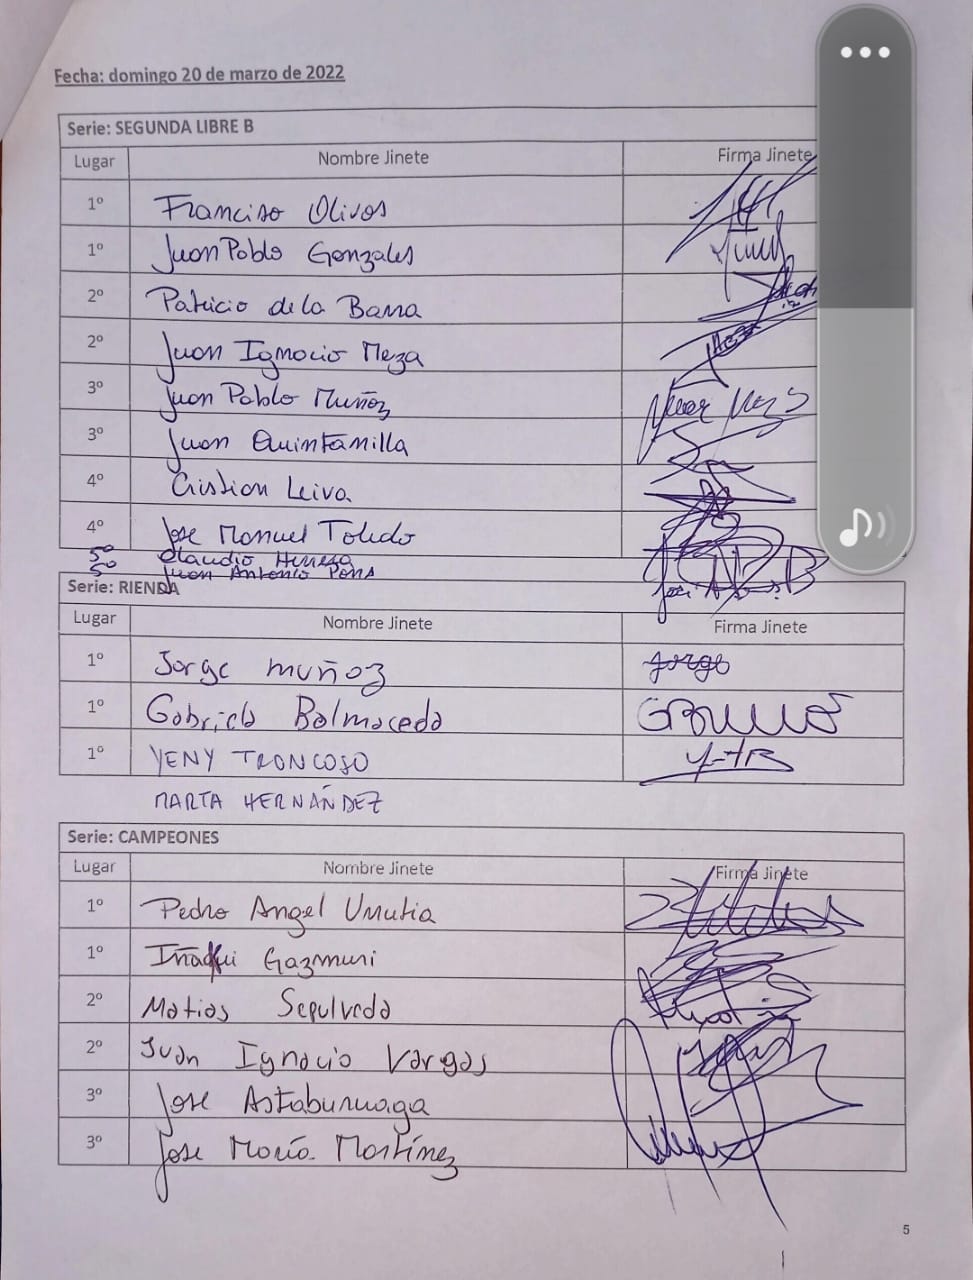 Fecha: domingo 20 de marzo de 2022
Serie: SEGUNDA LIBRE B
Lugar Nombre Jinete Firma Jinete
1º Franciso Olivos
1º Juan Pablo Gonzales
2º Patricio de la Barra
2º Juan Ignacio Meza
3º Juan Pablo Muñoz
3º Juan Quintanilla
4º Cristian Leiva
4º Jose Manuel Toledo
5º Claudio Herrera
5º Juan Antonio Pons
Serie: RIENDA
Lugar Nombre Jinete Firma Jinete
1º Jorge Muñoz Jorge
1º Gabriela Balmaceda
1º YENY TRONCOSO
MARTA HERNÁNDEZ
Serie: CAMPEONES
Lugar Nombre Jinete Firma Jinete
1º Pedro Angel Urrutia
1º Iñaqui Gazmuri
2º Matias Sepulveda
2º Juan Ignacio Vargas
3º Jose Astaburuaga
3º Jose María Martínez
5